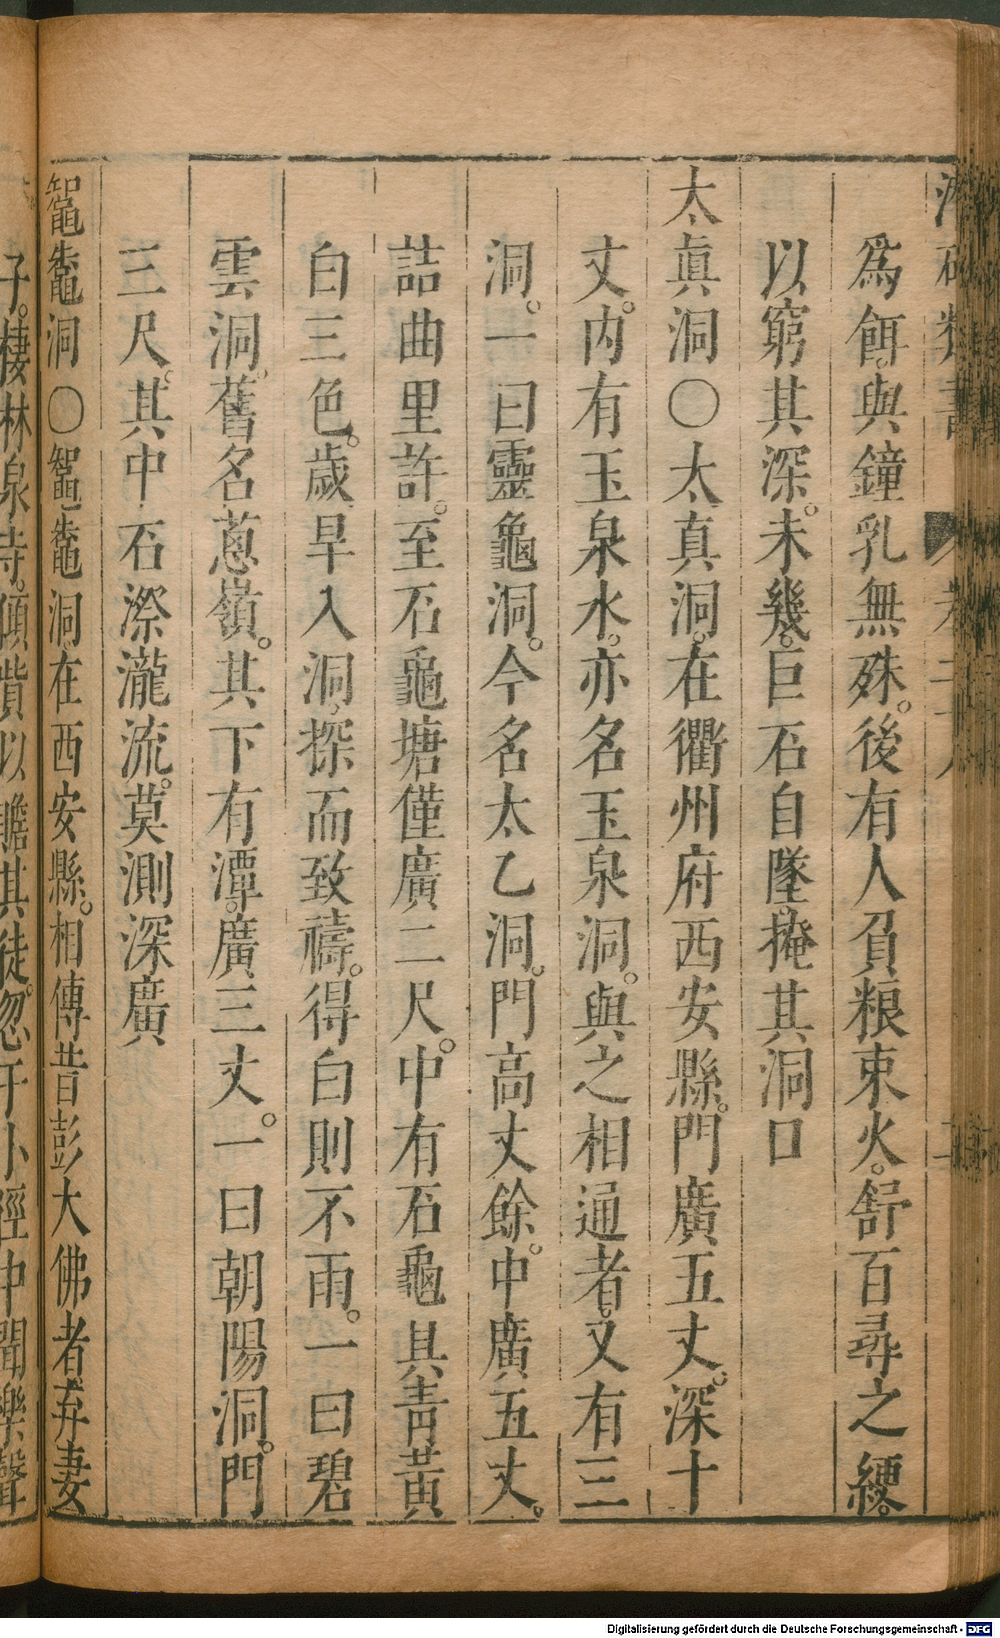 爲餌。與鐘乳無殊。後有人負粮束火。舒百尋之綆。
以窮其深。未幾。巨石自墜。掩其洞口
太眞洞〇太真洞。在衢州府西安縣。門廣五丈。深十
丈。内有玉泉水。亦名玉泉洞。與之相通者。又有三
洞。一曰靈龜洞。今名太乙洞。門高丈餘。中廣五丈。
詰曲里許。至石龜塘僅廣二尺。中有石龜具青黃
白三色。歲旱入洞探而致禱。得白則不雨。一曰碧
雲洞。舊名蔥嶺。其下有潭。廣三丈。一曰朝陽洞。門
三尺。其中石漈瀧流。莫測深廣
洞〇洞在西安縣。相傳昔彭大佛者弃妻
子。棲林泉寺。傾貲以贍其徒。忽于小徑中聞樂聲
Digitalisierung gefördert durch die Deutsche Forschungsgemeinschaft - DFG